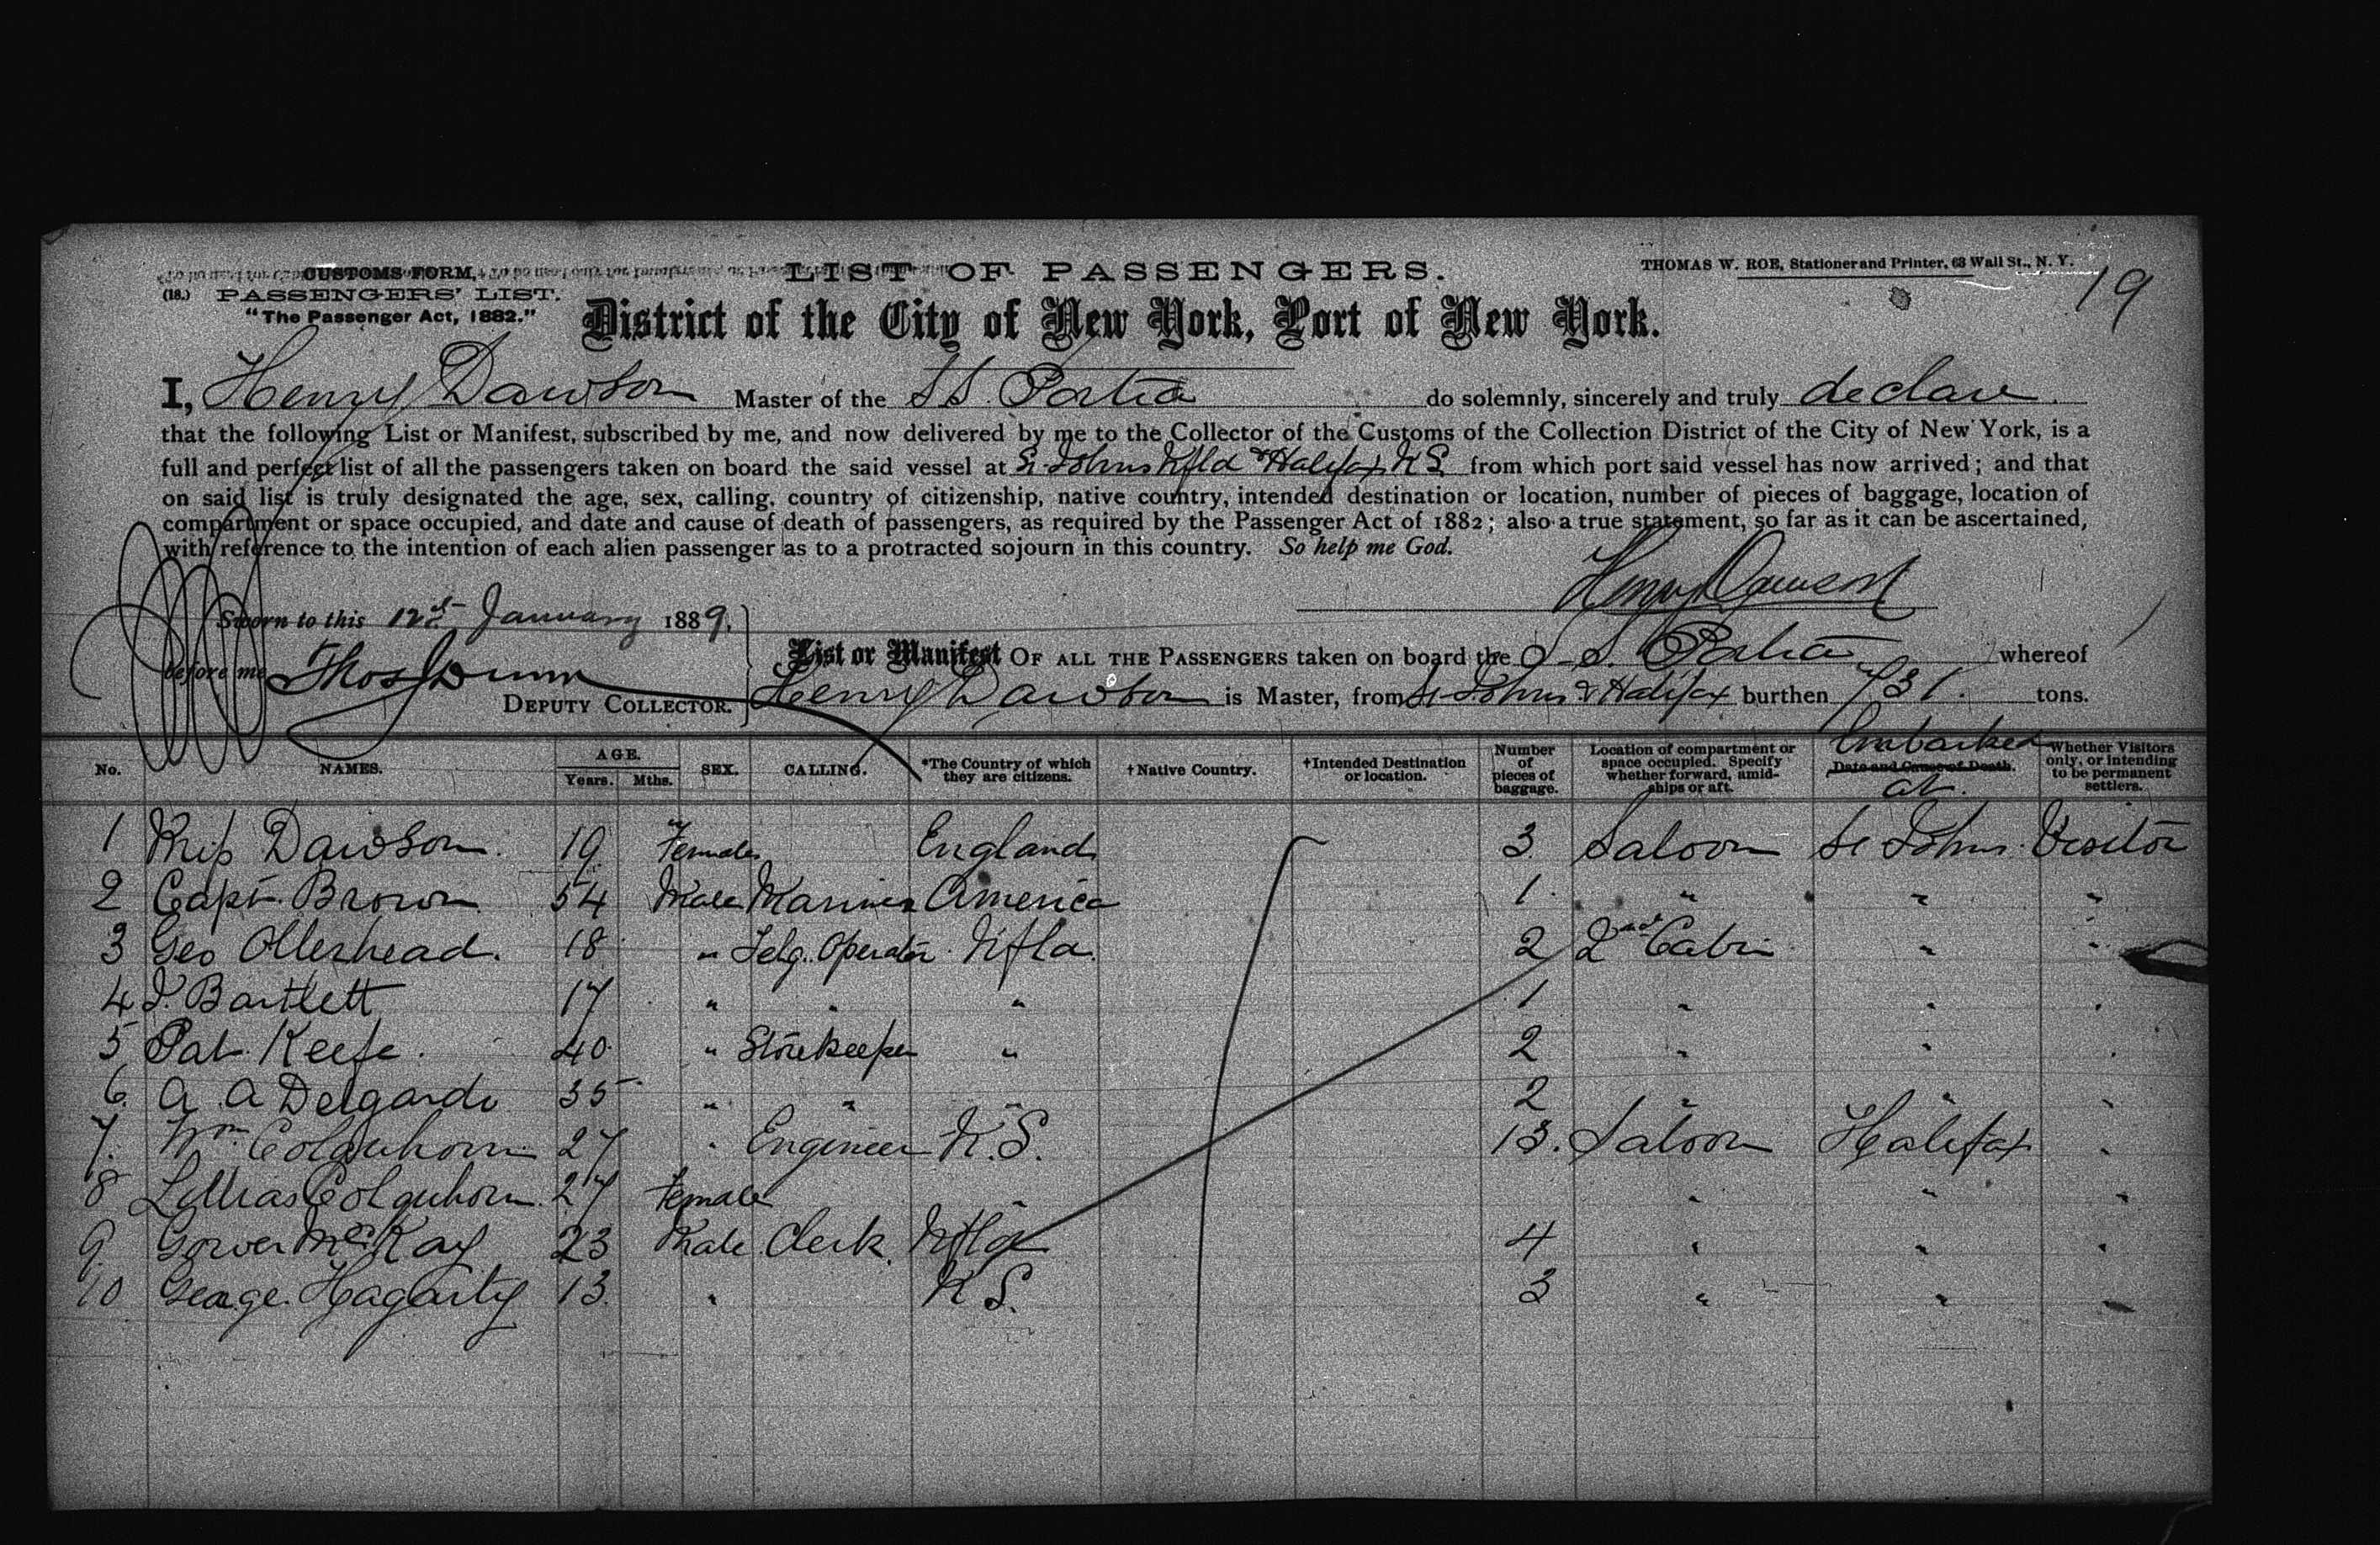 CUSTOMS FORM, LIST OF PASSENGERS. THOMAS W. ROE, Stationer and Printer, 63 Wall St., N. Y.
(18.) PASSENGERS' LIST. 19
"The Passenger Act, 1882." District of the City of New York, Port of New York.
I, Henry Dawson Master of the SS. Portia do solemnly, sincerely and truly declare
that the following List or Manifest, subscribed by me, and now delivered by me to the Collector of the Customs of the Collection District of the City of New York, is a
full and perfect list of all the passengers taken on board the said vessel at St Johns Nfld & Halifax N S from which port said vessel has now arrived; and that
on said list is truly designated the age, sex, calling, country of citizenship, native country, intended destination or location, number of pieces of baggage, location of
compartment or space occupied, and date and cause of death of passengers, as required by the Passenger Act of 1882; also a true statement, so far as it can be ascertained,
with reference to the intention of each alien passenger as to a protracted sojourn in this country. So help me God.
Henry Dawson
Sworn to this 12 January 1889.
before me Thos Dunn
DEPUTY COLLECTOR.
List or Manifest OF ALL THE PASSENGERS taken on board the S. S. Portia whereof
Henry Dawson is Master, from St Johns & Halifax burthen 731. tons.
No. NAMES. AGE. Years. Mths. SEX. CALLING. *The Country of which they are citizens. †Native Country. †Intended Destination or location. Number of pieces of baggage. Location of compartment or space occupied. Specify whether forward, amidships or aft. Date and Cause of Death. Embarked at. Whether Visitors only, or intending to be permanent settlers.
1 Miss Dawson. 19. Female England 3. Saloon St Johns. Visitor
2 Capt. Brown 54 Male Mariner America 1. " " "
3 Geo Ollerhead. 18 " Telg. Operator Nfld. 2 2nd Cabin " "
4 J. Bartlett 17 " " " 1 " " "
5 Pat Keefe. 40. " Storekeeper " 2 " " "
6. A. A Delgardo 35 " " " 2 " " "
7. Wm Colquhorn 27 " Engineer N.S. 13. Saloon Halifax "
8 Colquhorn. 27 Female " " " "
9. McKay 23 Male Clerk. Nfld 4 " " "
10 George. Hagarty 13. " N S. 3 " " "